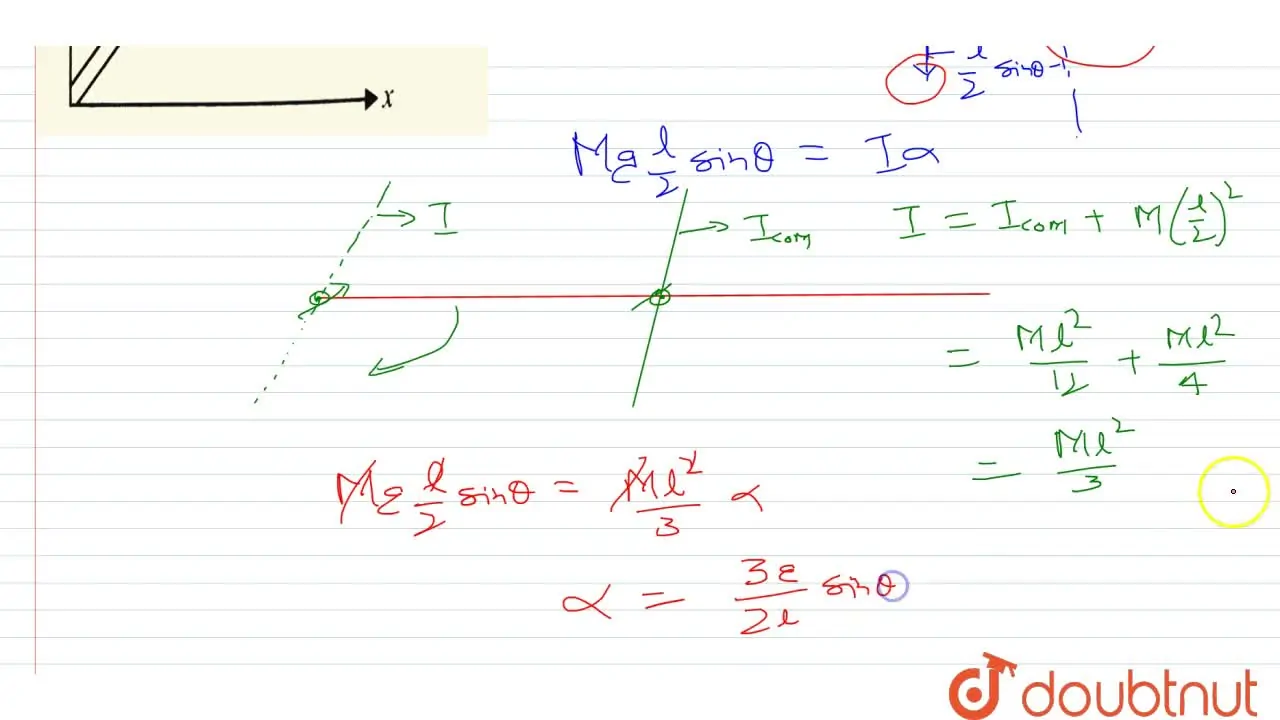 x
l/2 sinθ
Mg l/2 sinθ = Iα
I
I com
I = I com + M(l/2)²
= Ml²/12 + Ml²/4
= Ml²/3
Mg l/2 sinθ = Ml²/3 α
α = 3g/2l sinθ
doubtnut